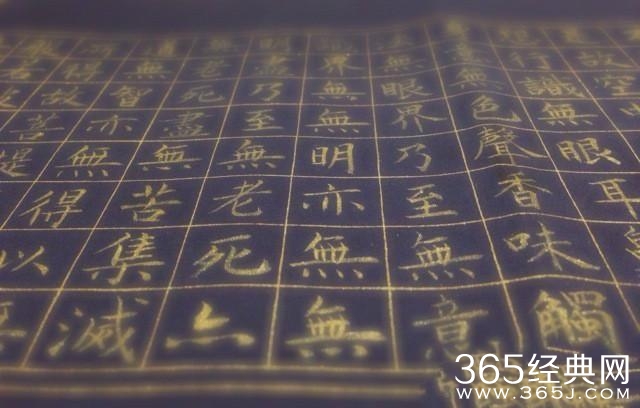 故空
想行識無眼耳
意無色聲香味觸
法無眼界乃至無意
界無無明亦無無
明盡乃至無老死亦
老死盡無苦集滅
道無智亦無得以
得故菩提
365经典网
WWW.365J.COM